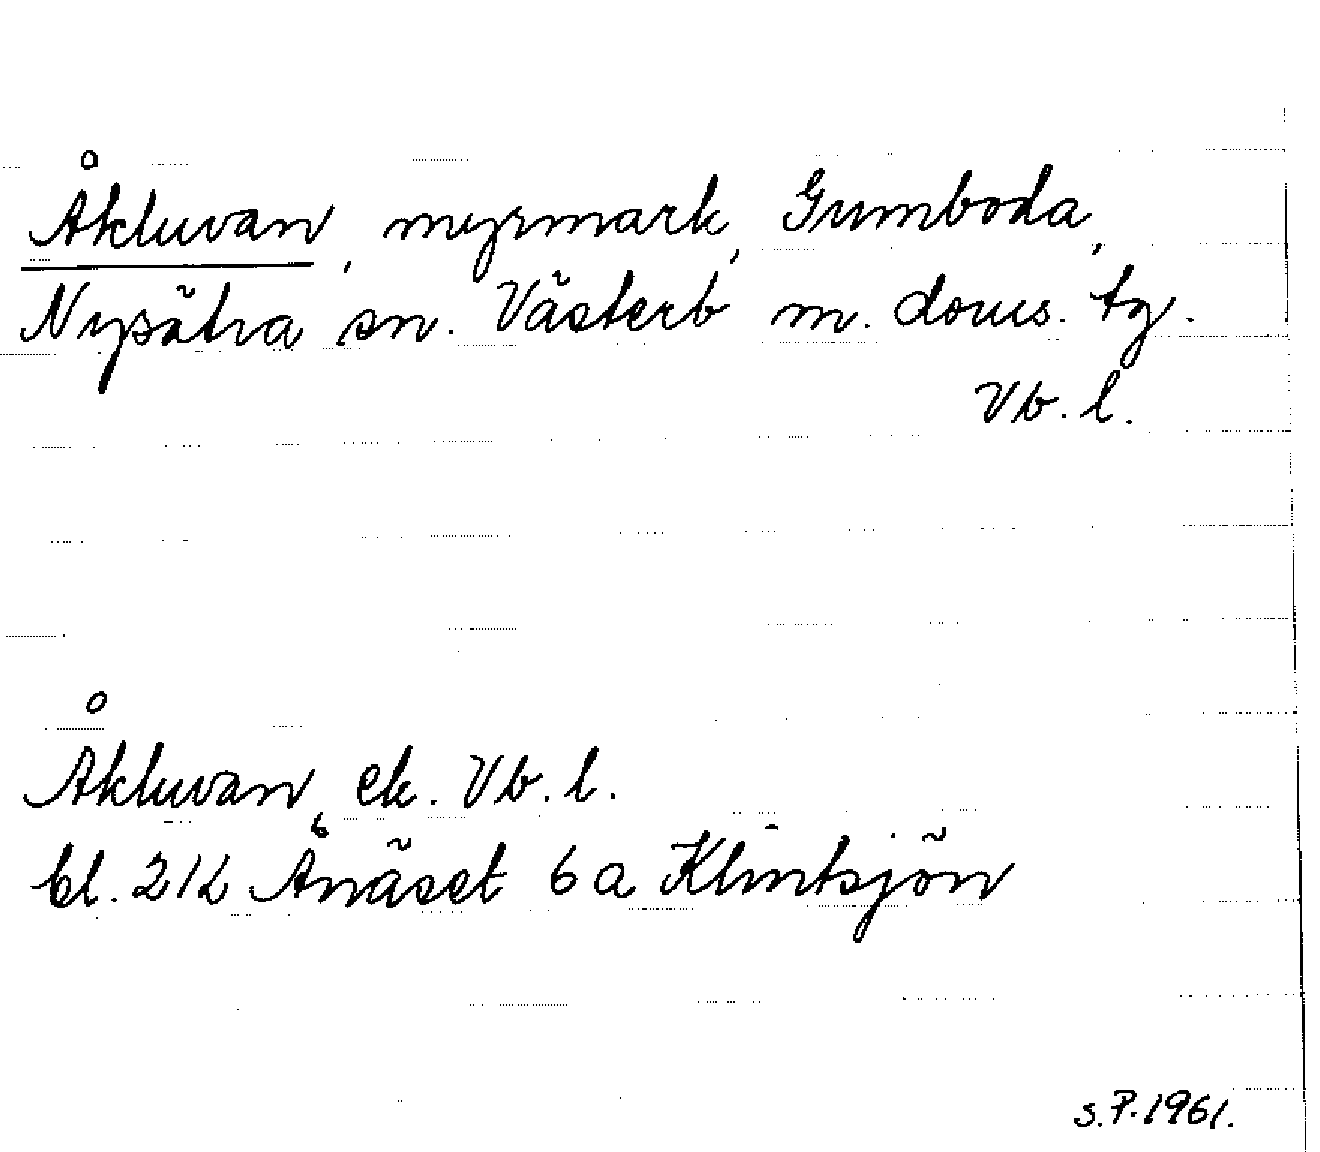 Åkluvan, myrmark, Gumboda,
Nysätra sn. Västerb m. doms. tg.
Vb. l.
Åkluvan ek. Vb. l.
bl. 21L Ånäset 6 a Klintsjön
S.P. 1961.